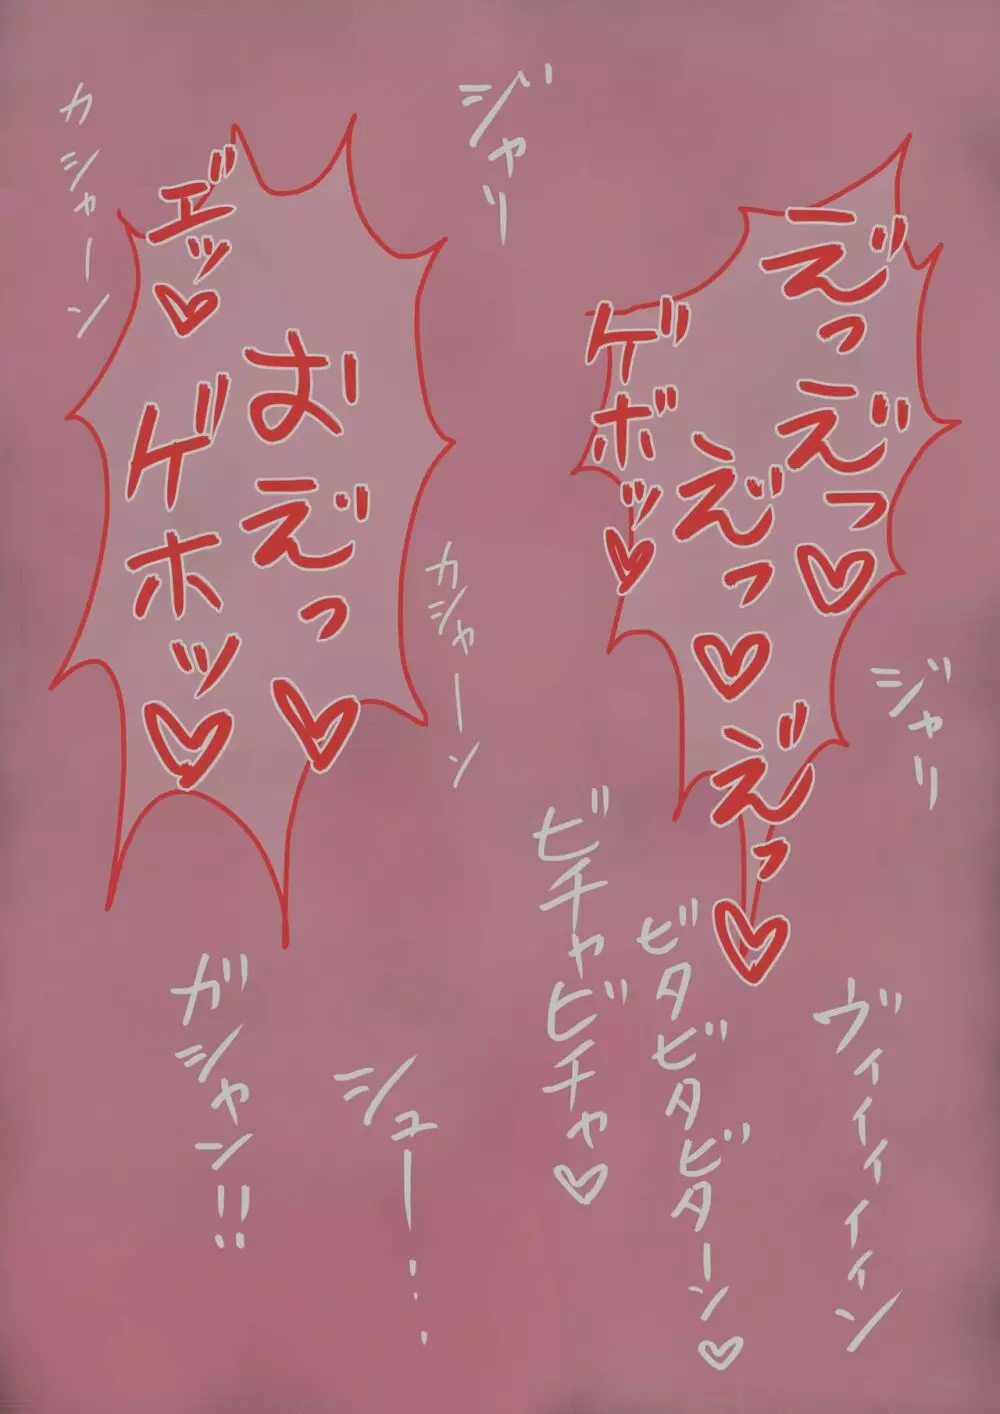 え゛っ
え゛っ♡
え゛っ♡
え゛っ♡
ゲボッ♡
ジャリ
ジャリ
ヴィィィィィン
ビタビタビターン♡
ビチャビチャ♡
おえ゛っ♡
ゲホッ♡
エ゛ッ♡
カシャーン
カシャーン
シュー・・・
ガシャン!!